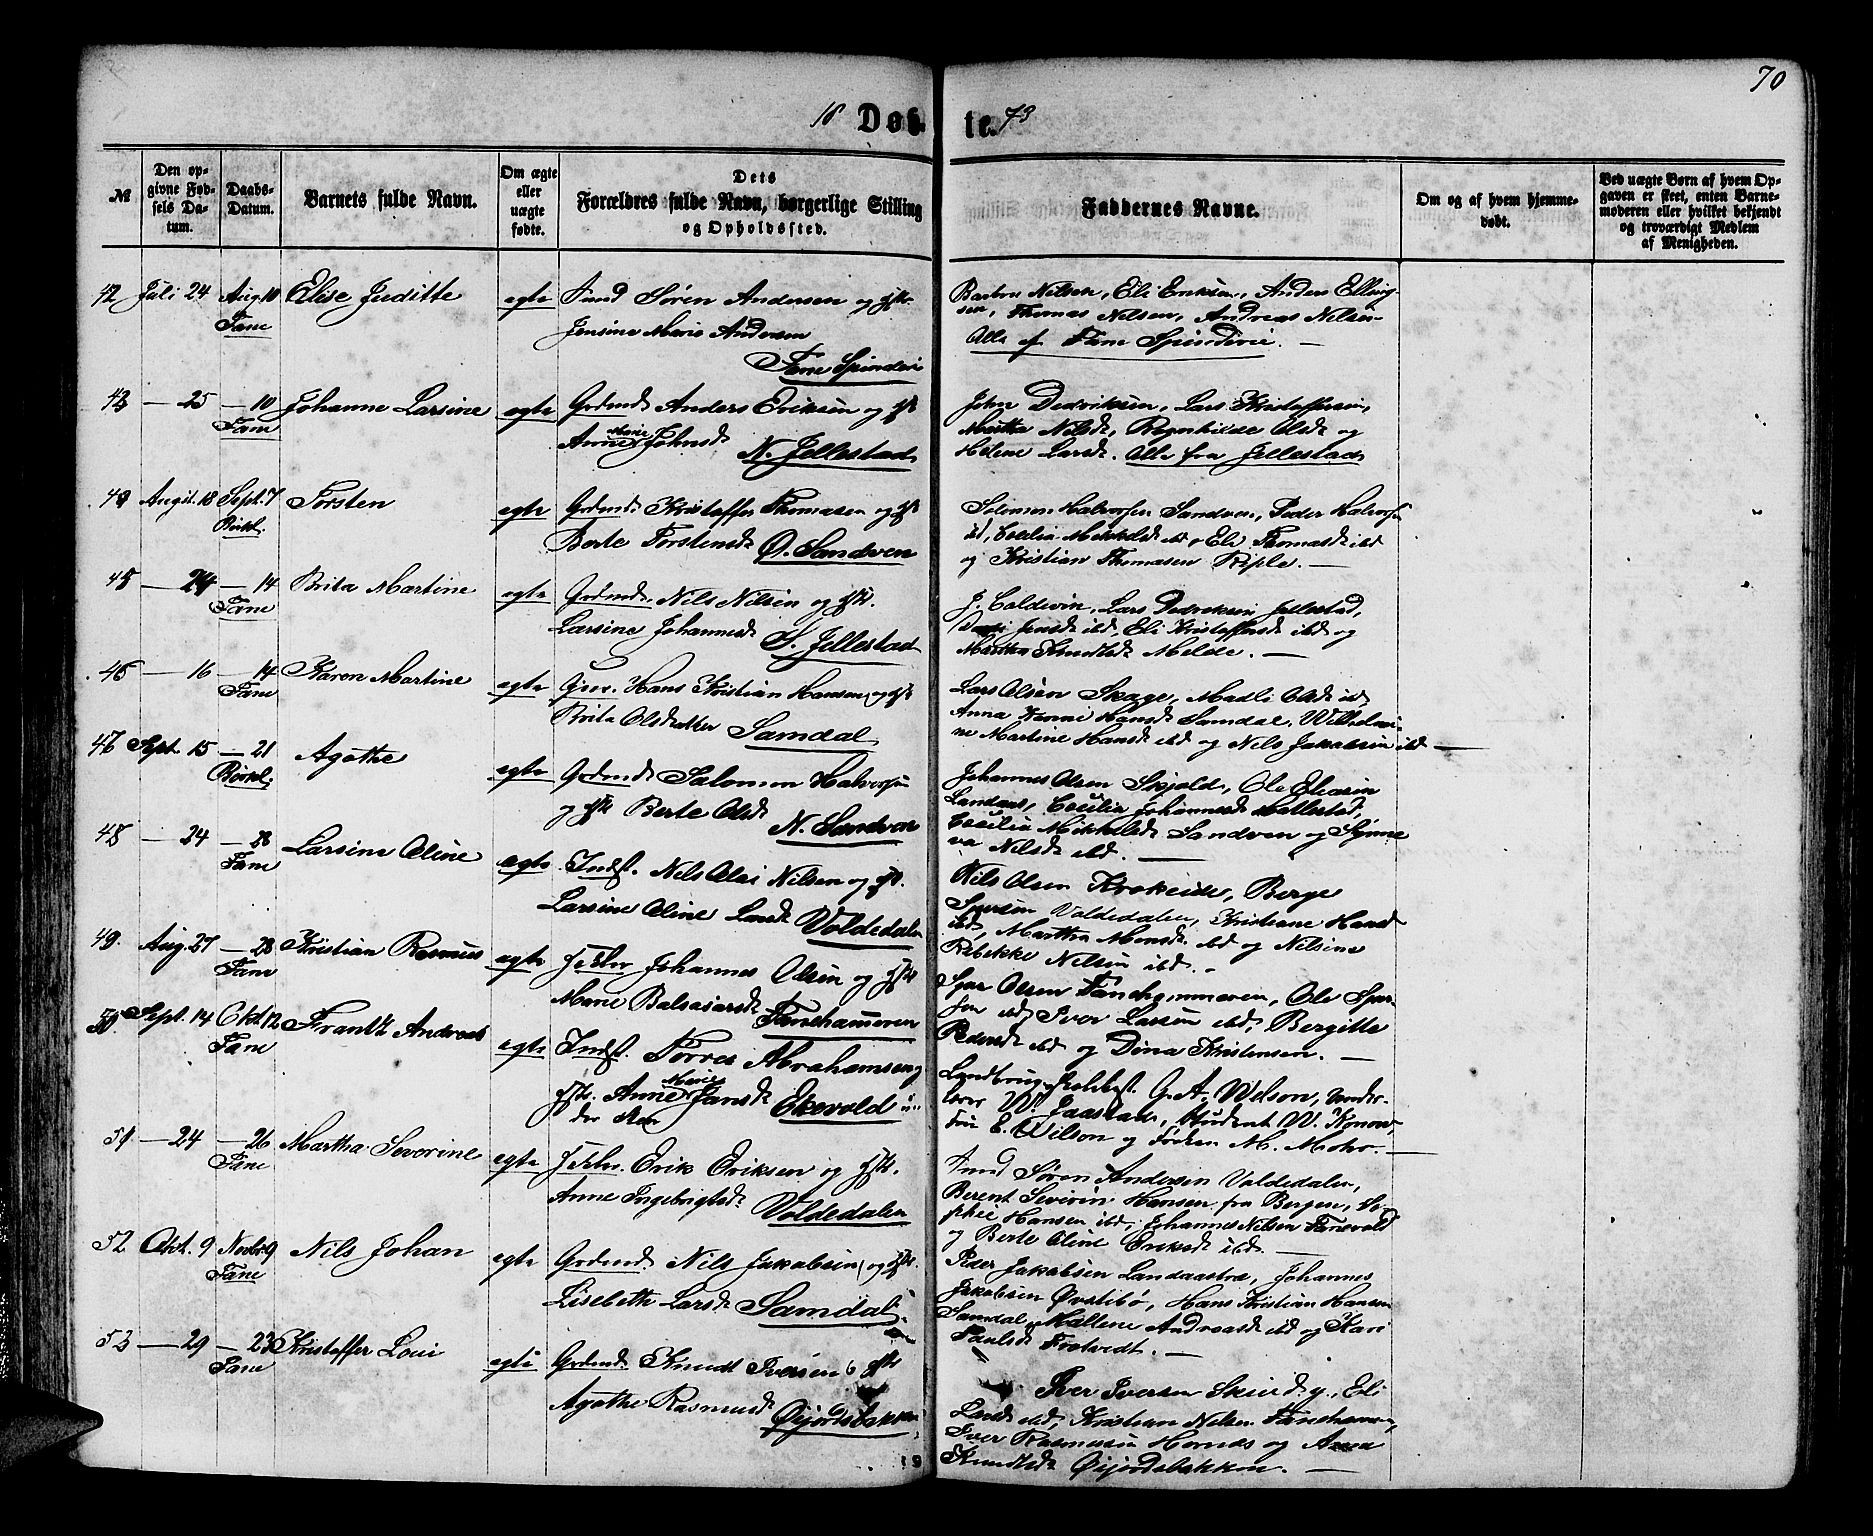 70
18 Døbte. 73
№
Den opgivne Fødsels Datum.
Daabs-Datum.
Barnets fulde Navn.
Om ægte eller uægte fødte.
Dets Forældres fulde Navn, borgerlige Stilling og Opholdssted.
Faddernes Navne.
Om og af hvem hjemmedøbt.
Ved uægte Børn af hvem Opgaven er skeet, enten Barnemoderen eller hvilket bekjendt og troværdigt Medlem af Menigheden.
42 Juli 24 Aug. 10 Elise Juditte egte Søren Andersen og Hst.
Fane Jensine Marie Andersen
Fane Spinderi
Barbra Nilsen, Eli Eriksen, Anders Ellingsen, Thomas Nilsen, Andreas Nilsen
Alle af Fane Spinderie. —
43 — 25 — 10 Johanne Larsine egte Grdmd. Anders Eriksen og Hst
Fane Anne Marie Johnsdt N. Jellestad
John Dedriksen, Lars Kristoffersen,
Martha Nilsdt, Ragnhilde Olsdt og
Helene Larsdt. Alle fra Jellestad
44 Augst. 18 Sept. 7 Torsten egte Grdmd. Kristoffer Thomasen og Hst
Birkl. Berte Torstensdt Ø. Sandven
Salomon Halvorsen Sandven, Peder Halvorsen
ibd, Cecilia Mikkelsdt ibd, Eli Thomasdt ibd
og Kristian Thomasen Riple. —
45 — 24 — 14 Brita Martine egte Grdmd. Nils Nilsen og Hst.
Fane Larsine Johannesdt S. Jellestad
J. Coldevin, Lars Dedriksen Jellestad,
Jensdt ibd, Eli Kristoffersdt ibd og
Martha Knudsdt Melde. —
46 — 16 — 14 Karen Martine egte Hans Kristian Hansen og Hst
Fane Brita Olsdatter Samdal
Lars Olsen Skage, Madli Olsdt ibd,
Anna Karine Hansdt Samdal, Wilhelmine
Martine Hansdt ibd og Nils Jakobsen ibd —
47 Sept. 15 — 21 Agathe egte Grdmd. Salomon Halvorsen
Birkl. og Hst Berte Olsdt N. Sandven
Johannes Olsen Skjold, Ole Eliasen
Landaas, Cecilia Johannesdt Hallestad,
Cecilia Mikkelsdt Sandven og Synneva
Nilsdt ibd. —
48 — 24 — 28 Larsine Oline egte Indst. Nils Olai Nilsen og Hst.
Fane Larsine Oline Larsdt Voldedalen
Nils Olsen Krokeide, Berge
Voldedalen, Kristiane Hansdt
ibd, Martha Monsdt ibd og Nilsine
Rebekke Nilsen ibd. —
49. Aug. 27 — 28 Kristian Rasmus egte Johannes Olsen og Hst
Fane Marie Balsasarsdt Fanehammeren
Sjur Olsen Fanehammeren, Ole Sjursen
ibd, Iver Larsen ibd, Bergitte
Pedersdt ibd og Dina Kristensen. —
50 Sept. 14 Okt. 12 Frantz Andreas egte Indst. Torres Abrahamsen og
Fane Hst. Anne Marie Jansdt Ekevold
Landbrugsskolebest. G. A. Wilson,
W. Gaastad, Student W. Konow,
E. Wilson og Frøken M. Mohr. —
51 — 24 — 26 Martha Severine egte Erik Eriksen og Hst.
Fane Anne Ingebrigtsdt Voldedalen
Søren Andersen Voldedalen,
Berent Severin Hansen fra Bergen, Sophie
Hansen ibd, Johannes Nilsen Fanevold
og Berte Oline Eriksdt ibd. —
52 Okt. 9 Novbr. 9 Nils Johan egte Grdmd. Nils Jakobsen og Hst.
Fane Lisebeth Larsdt Samdal
Peder Jakobsen Landaastræ, Johannes
Jakobsen Øvstebø, Hans Kristian Hansen
Samdal, Mallene Andreasdt ibd og Kari
Paulsdt Frotvedt. —
53 — 29 — 23 Kristoffer Loui egte Grdmd. Knudt Iversen Hst
Fane Agathe Rasmusdt Øijordsbakken
Iver Iversen Eli
Larsdt ibd, Kristian Nilsen Fanehammer,
Iver Rasmussen Hornæs og Anna
Knudsdt Øijordsbakken. —